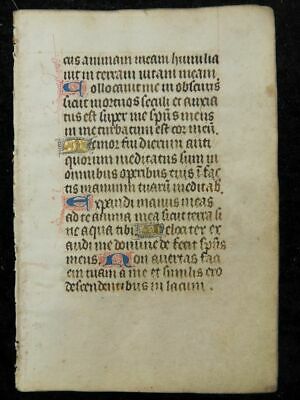 cus animam meam humilia
uit in terram uitam meam.
Collocauit me in obscuris
sicut mortuos seculi et anxia
tus est super me sp̃us meus
in me turbatum est cor meũ.
Memor fui dierum anti
quorum meditatus sum in
omnibus operibus tuis ĩ fac
tis manuum tuarũ meditab.
Expandi manus meas
ad te anima mea sicut terra si
ne aqua tibi Velociter ex
audi me domine de fecit sp̃us
meus Non auertas faci
em tuam a me et similis ero
descendentibus in lacum.